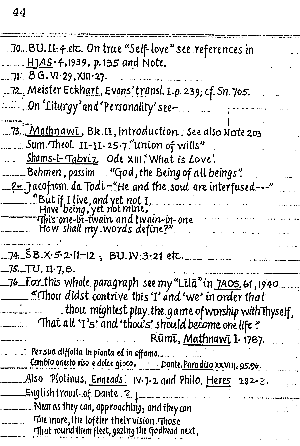 44
70. B.U. II.4. etc. On true "Self-love" see references in
HJAS. 4, 1939, p. 135 and Note.
71. B G. VI.29, XIII.27.
72. Meister Eckhart, Evans' transl. I. p. 239; cf. Sn. 705.
On 'Liturgy' and 'Personality' see—
73. Mathnawī, Bk. II, Introduction. See also Note 203
Sum. Theol. II-II-25.7. "Union of wills"
Shams-i-Tabriz Ode XIII. 'What is Love'.
Behmen, passim "God, the Being of all beings".
Jacopone da Todi - "He and the soul are interfused ---"
"But if I live, and yet not I,
Have being, yet not mine,
This one-in-twain and twain-in-one
How shall my words define?"
74. S.B. X.5.2.11-12, BU. IV.3.21 etc.
75. TU. II.7, 8.
76. For this whole paragraph see my "Līlā" in JAOS. 61, 1940
"Thou didst contrive this 'I' and 'we' in order that
thou mightest play the game of worship with Thyself,
That all 'I's' and 'thou's' should become one life."
Rūmī, Mathnawī I. 1787.
Per sua diffalta in pianto ed in affanno
Cambiò onesto riso e dolce gioco. Dante, XXVIII, 95, 96.
Also Plotinus, Enneads. IV.7.2 and Philo, Heres 282-3.
English transl. of Dante.
Near as they can, approaching; and they can
The more, the loftier their vision. Those
That round them fleet, gazing the Godhead next,